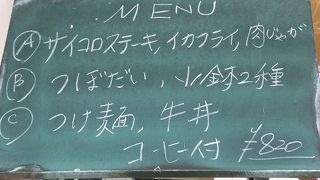 MENU
Ⓐ サイコロステーキ, イカフライ, 肉じゃが
Ⓑ つぼだい, 小鉢2種
Ⓒ つけ麺, 牛丼
コーヒー付 ¥820